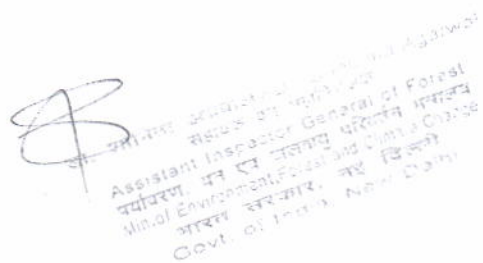 Agarwal
Assistant Inspector General of Forest
पर्यावरण, वन एवं जलवायु परिवर्तन मंत्रालय
Min.of Environment,Forest and Climate Change
भारत सरकार, नई दिल्ली
Govt. of India, New Delhi